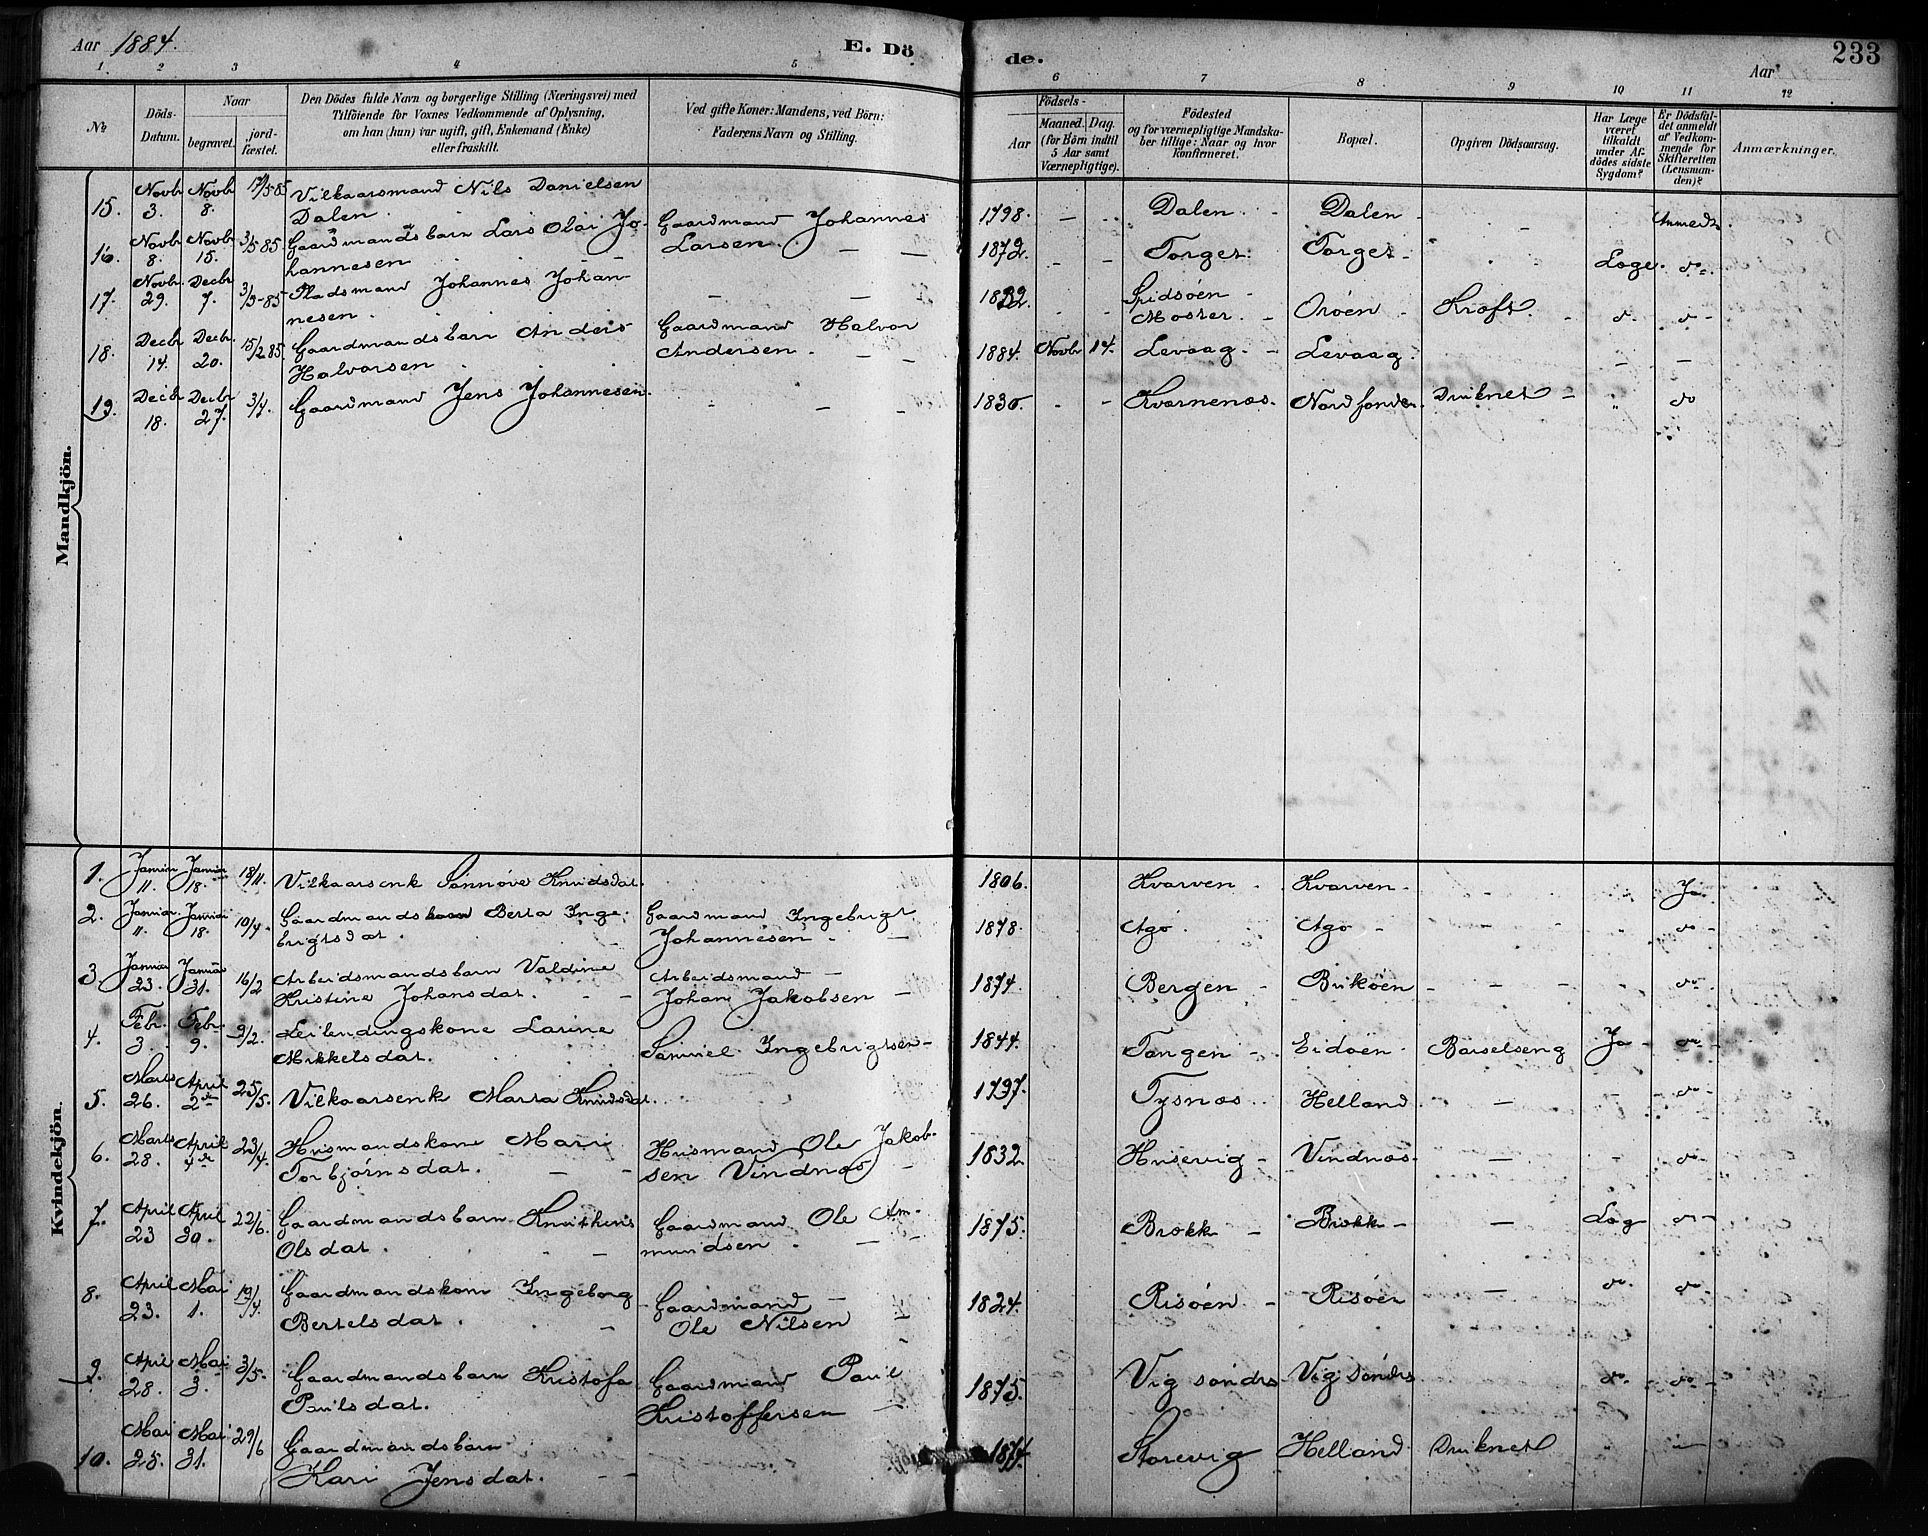 Aar 1884.
E. Dö
de.
Aar
233
1.
2
3
4
5
6
7
8
9
10
11
12
No
Döds-
Datum.
Naar
begravet.
jord-
fæstet.
Den Dödes fulde Navn og borgerlige Stilling (Næringsvei) med
Tilföiende for Voxnes Vedkommende af Oplysning,
om han (hun) var ugift, gift, Enkemand (Enke)
eller fraskilt.
Ved gifte Koner: Mandens, ved Börn:
Faderens Navn og Stilling.
Födsels-
Aar
Maaned.
Dag.
(for Börn indtil
5 Aar samt
Værnepligtige).
Födested
og for værnepligtige Mandska-
ber tillige: Naar og hvor
konfirmeret.
Bopæl.
Opgiven Dödsaarsag.
Har Læge
været
tilkaldt
under Af-
dödes sidste
Sygdom?
Er Dödsfal-
det anmeldt
af Vedkom-
mende for
Skifteretten
(Lensman-
den)?
Anmærkninger.
Mandkjön.
15. Novbr 3. Novbr 8. 17/5 85 Vilkaarsmand Nils Danielsen
Dalen. 1798. Dalen Dalen Anmedt
16. Novbr 8. Novbr 15. 3/5 85. Gaardmandsbarn Lars Olai Jo-
hannesen Gaardmand Johannes
Larsen. 1872. Torget Torget Læge. do
17. Novbr 29. Decbr 7. 3/5-85 Pladsmand Johannes Johan-
nesen. 1832. Spidsöen
Moster. Oröen Kræft. do do
18. Decbr 14. Decbr 20. 15/2 85. Gaardmandsbarn Anders
Halvorsen Gaardmand Halvor
Andersen. 1884. Novbr 14. Levaag. Levaag.
19. Decbr 18. Decbr 27. 3/4. Gaardmand Jens Johannesen. 1830. Kvarnenæs. Druknet " do
Kvindekjön.
1. Januar 11. Januar 18. 18/11. Vilkaarsenk Sønnøve Knudsdat. 1806. Kvarven Kvarven. Ja
2. Januar 11. Januar 18. 10/4. Gaardmandsbarn Berta Inge-
brigtsdat. Gaardmand Ingebrigt
Johannesen. 1878. Agö. Agö do
3 Januar 23. Januar 31. 16/2 Arbeidsmandsbarn Valdine
Kristine Johansdat. Arbeidsmand
Johan Jakobsen 1874. Bergen do
4. Febr. 3. Febr. 9. 9/2. Leilendingskone Larine
Mikkelsdat. Samuel Ingebrigtsen 1844. Tangen Eidöen Barselseng Ja do
5. Marts 26. April 2den 25/5. Vilkaarsenk Marta Knudsdat. 1797. Tysnæs Helland do
6. Marts 28. April 4de 23/4. Husmandskone Mari
Torbjörnsdat. Husmand Ole Jakob-
sen Vindnæs 1832 Husevig Vindnæs do
7. April 23 April 30. 22/6. Gaardmandsbarn
Olsdat. Gaardmand Ole Am-
mundsen. 1875. Brokk Brokk Læg do
8. April 23. Mai 1. 19/4. Gaardmandskone Ingeborg
Bertelsdat. Gaardmand
Ole Nilsen 1824. Risöen Risöen do. do
9. April 28. Mai 3. 3/5. Gaardmandsbarn Kristofa
Paulsdat. Gaardmand Paul
Kristoffersen 1875. Vig söndre Vig söndre do. do
10. Mai 25. Mai 31. 29/6 Gaardmandsbarn
Kari Jensdat. 1874. Storevig Helland Druknet "